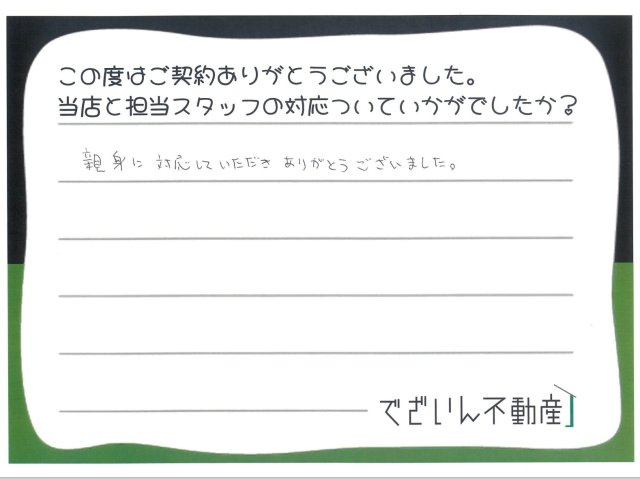 この度はご契約ありがとうございました。
当店と担当スタッフの対応ついていかがでしたか？
親身に 対応していただき ありがとうございました。
でざいん不動産